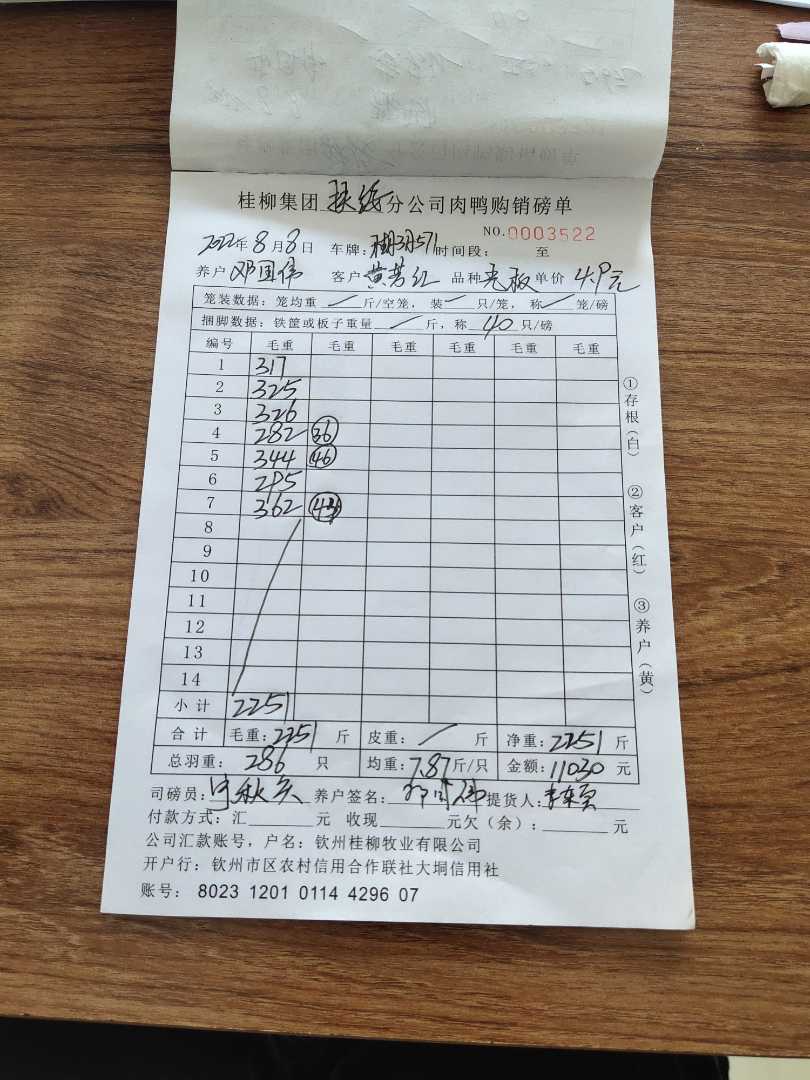 桂柳集团扶绥分公司肉鸭购销磅单
NO.0003522
2022年8月8日 车牌: 571 时间段: 至
养户 邓国伟 客户 黄芳红 品种 光板 单价 4.9元
笼装数据: 笼均重 / 斤/空笼, 装 / 只/笼, 称 / 笼/磅
捆脚数据: 铁筐或板子重量 / 斤, 称 40 只/磅
编号 毛重 毛重 毛重 毛重 毛重 毛重
1 317
2 325
3 326
4 282 36
5 344 46
6 295
7 362
8
9
10
11
12
13
14
小计 2251
合计 毛重: 2251 斤 皮重: / 斤 净重: 2251 斤
总羽重: 286 只 均重: 7.87 斤/只 金额: 11030 元
司磅员: 养户签名: 邓国伟 提货人:
付款方式: 汇 元 收现 元欠(余): 元
公司汇款账号, 户名: 钦州桂柳牧业有限公司
开户行: 钦州市区农村信用合作联社大垌信用社
账号: 8023 1201 0114 4296 07
①存根(白)
②客户(红)
③养户(黄)